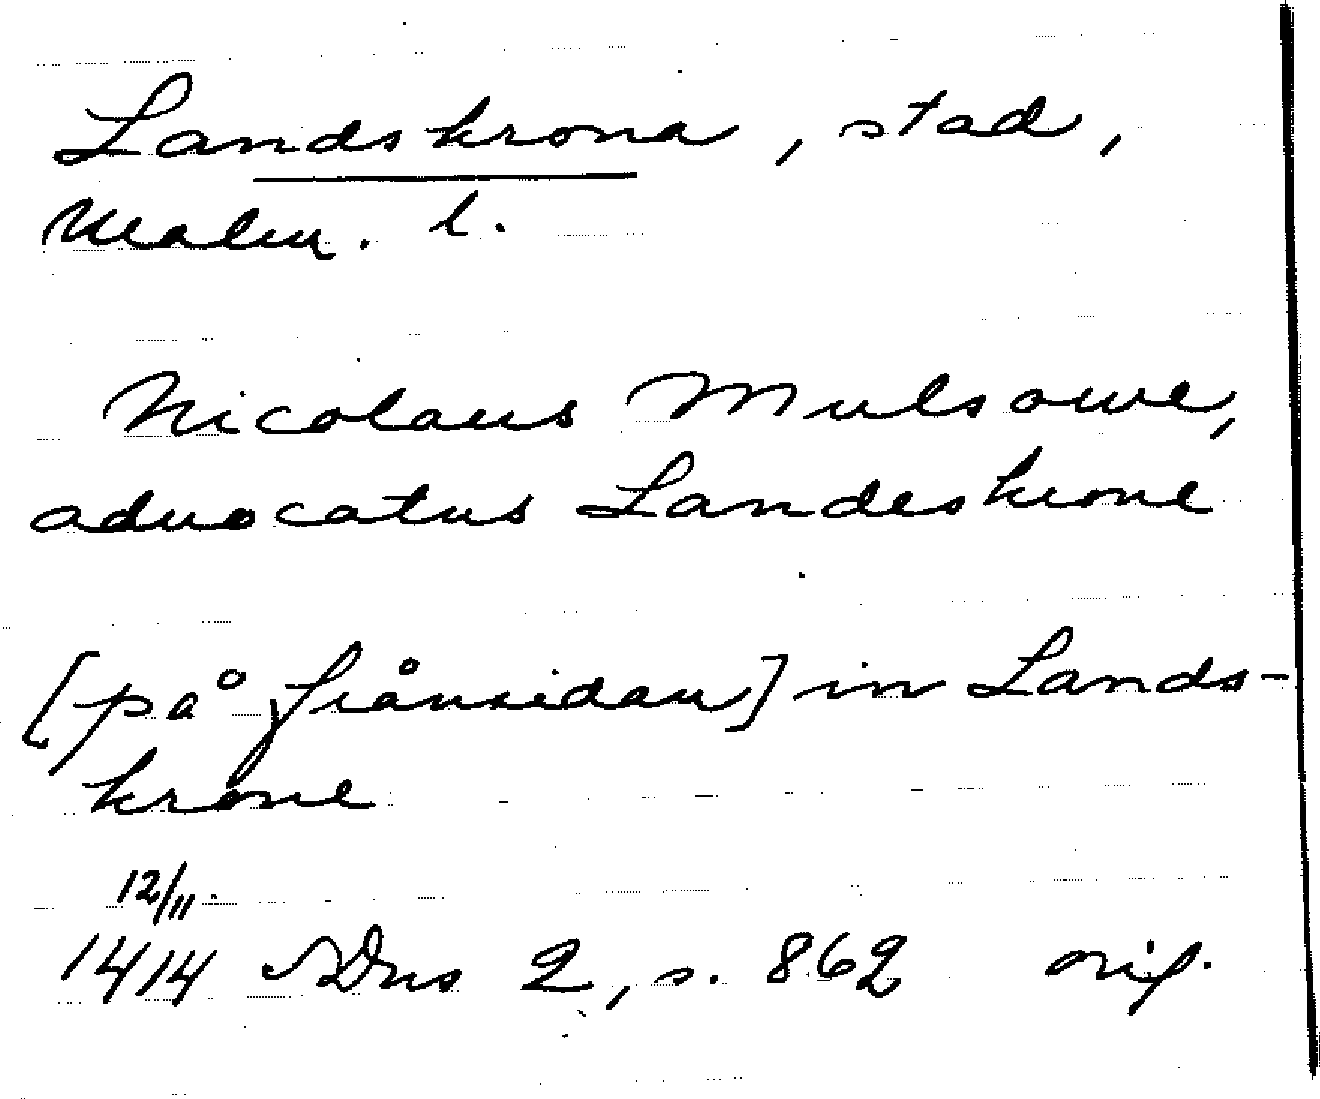 Landskrona, stad,
Malm. l.
Nicolaus Mulsowe,
advocatus Landeskrone
[på frånsidan] in Lands-
krone
12/11.
1414 SDns 2, s. 862 orig.